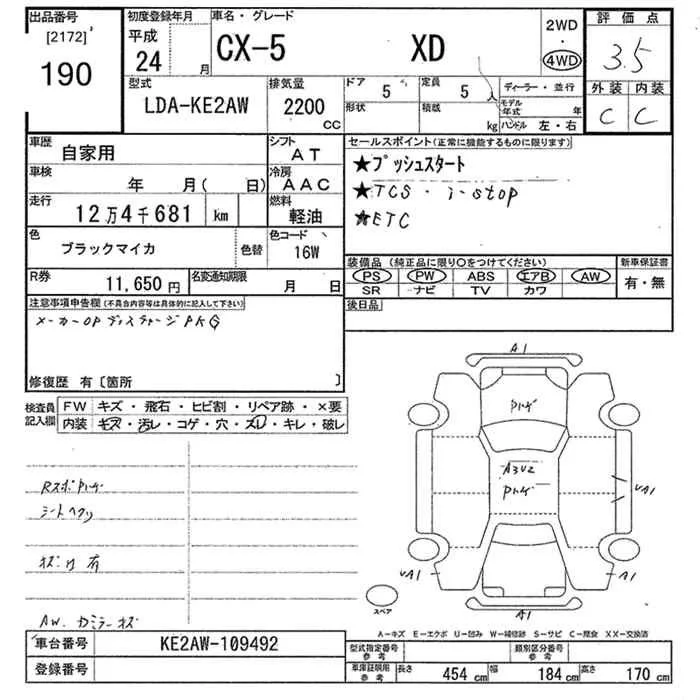 出品番号 初度登録年月 車名・グレード 評価点
[2172]
190
平成
24 月
CX-5 XD
2WD
4WD
3.5
外装 内装
C C
型式
LDA-KE2AW
排気量
2200
CC
ドア 5
定員 5 人
形状 積載 kg
ディーラー・並行
モデル年式 年
ハンドル 左・右
車歴 自家用
シフト AT
セールスポイント(正常に機能するものに限ります)
★プッシュスタート
★TCS・i-stop
★ETC
車検 年 月( 日)
冷房 AAC
走行 12万4千681 km
燃料 軽油
色 ブラックマイカ 色替
色コード 16W
装備品(純正品に限り○をつけてください) 新車保証書
PS PW ABS エアB AW
SR ナビ TV カワ
有・無
R券 11,650円
名変通知期限 月 日
後日品
注意事項申告欄(不具合内容等は具体的に記入して下さい)
メーカーOP ディスチャージPKG
修復歴 有〔箇所 〕
検査員記入欄
FW キズ・飛石・ヒビ割・リペア跡・×要
内装 キズ・汚レ・コゲ・穴・スレ・キレ・破レ
シートヘタリ
有
AW.
A1
A3U2
UA1
UA1
A1
A1
スペア
A-キズ E-エクボ U-凹み W-補修跡 S-サビ C-腐食 XX-交換済
車台番号 KE2AW-109492
登録番号
型式指定番号 参考
類別区分番号 参考
車庫証明用 参考
長さ 454 cm 幅 184 cm 高さ 170 cm